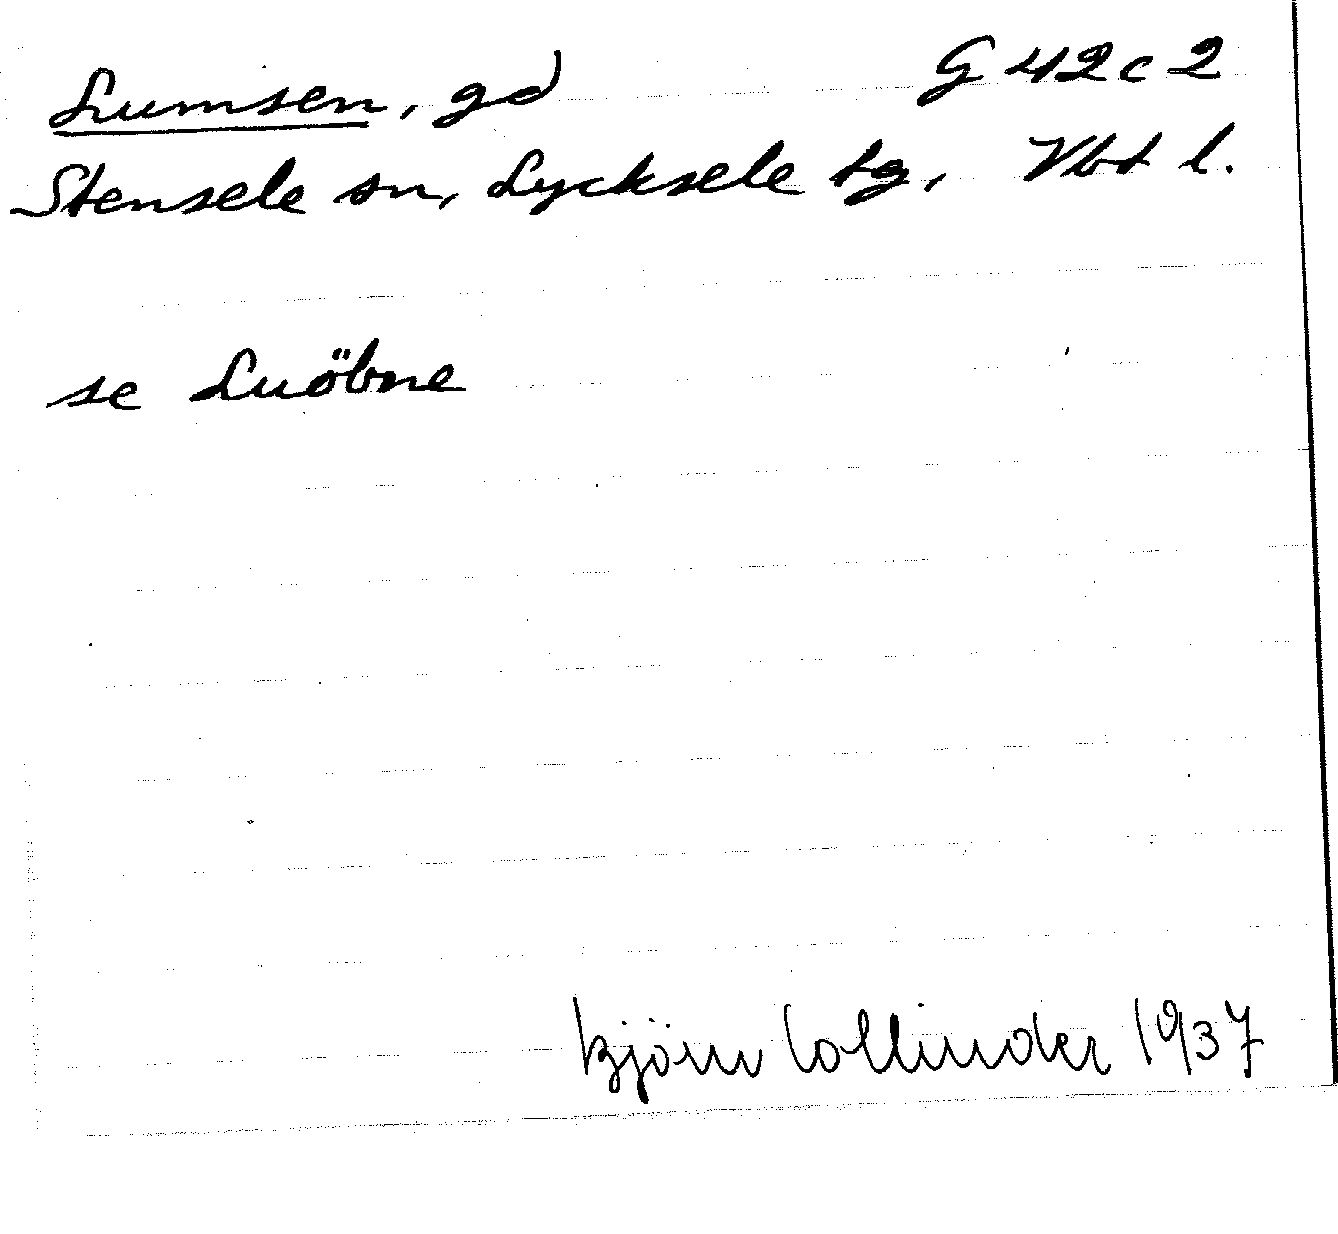 Lumsen, gd G 42 c 2
Stensele sn, Lycksele tg, Vbt l.
se Luöbme
Björn Collinder 1937